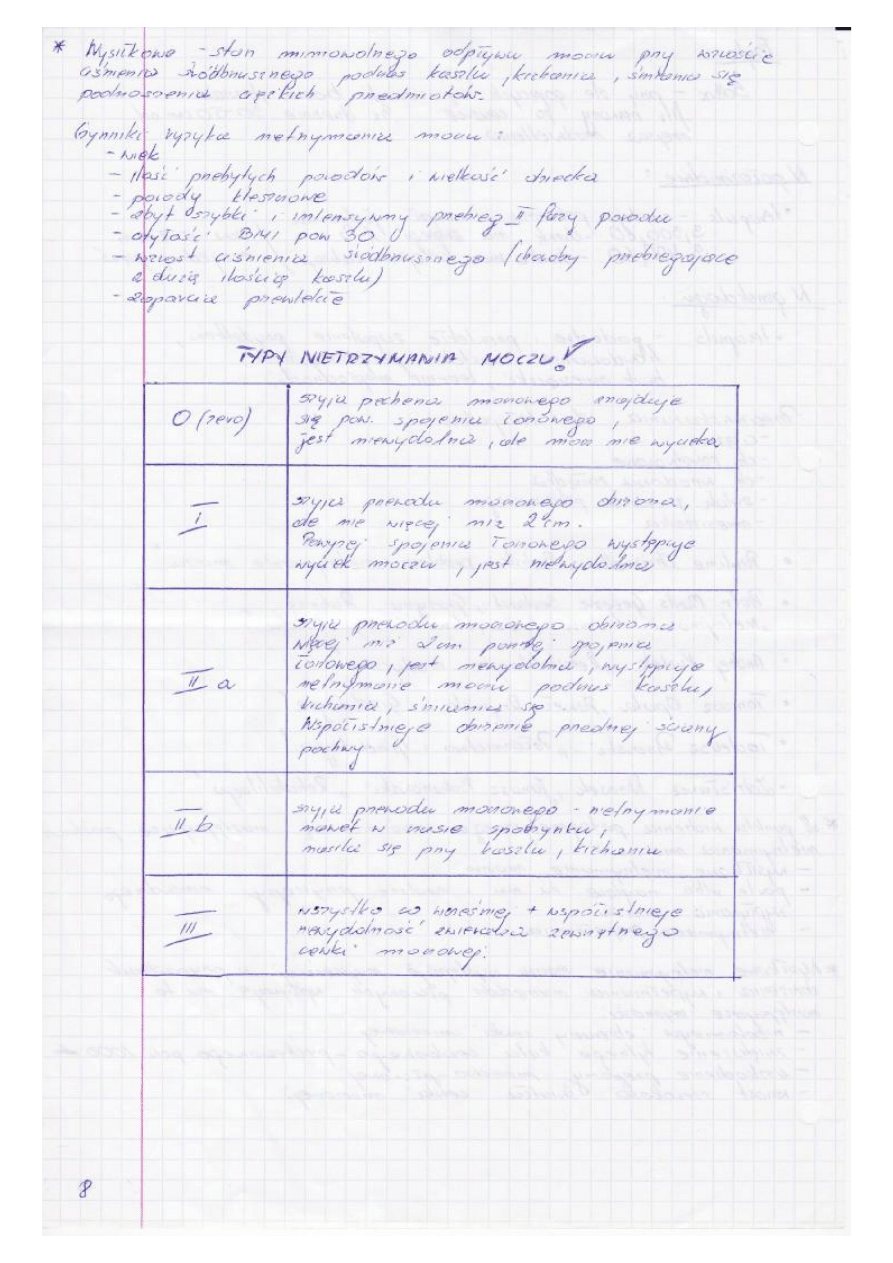 * Wysiłkowe - stan mimowolnego odpływu moczu przy wzroście
ciśnienia śródbrzusznego podczas kaszlu, kichania, śmiania się
podnoszenia ciężkich przedmiotów.
Czynniki ryzyka nietrzymania moczu:
- wiek
- ilość przebytych porodów i wielkość dziecka
- porody kleszczowe
- zbyt szybki i intensywny przebieg II fazy porodu
- otyłość BMI pow 30
- wzrost ciśnienia śródbrzusznego (choroby przebiegające
z dużą ilością kaszlu)
- zaparcia przewlekłe
TYPY NIETRZYMANIA MOCZU!
0 (zero)
szyja pęcherza moczowego znajduje
się pow. spojenia łonowego,
jest niewydolna, ale mocz nie wycieka
I
szyja przewodu moczowego obniżona,
ale nie więcej niż 2 cm.
Powyżej spojenia łonowego występuje
wyciek moczu, jest niewydolna
II a
szyja przewodu moczowego obniżona
więcej niż 2cm poniżej spojenia
łonowego, jest niewydolna, występuje
nietrzymanie moczu podczas kaszlu,
kichania, śmiania się
Współistnieje obniżenie przedniej ściany
pochwy
II b
szyja przewodu moczowego - nietrzymanie
nawet w czasie spoczynku,
nasila się przy kaszlu, kichaniu
III
wszystko co wcześniej + współistnieje
niewydolność zwieracza zewnętrznego
cewki moczowej.
8